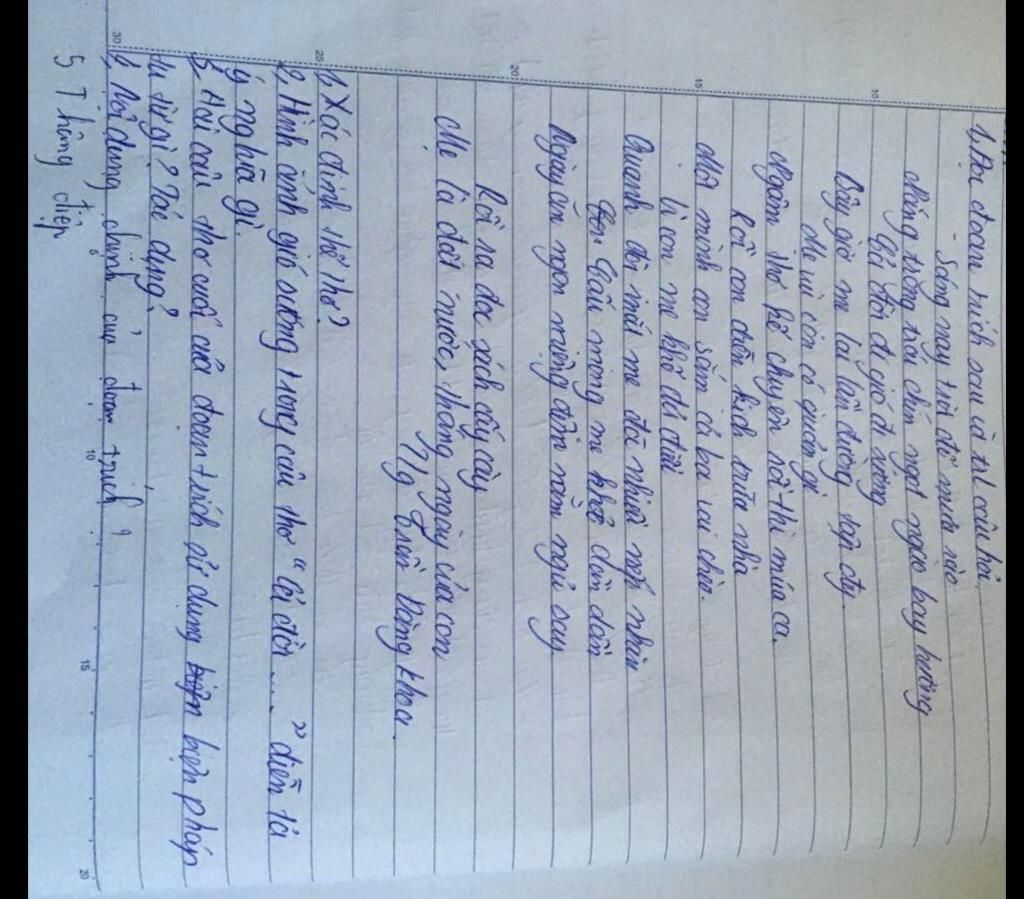 1, Đọc đoạn trích sau và trl câu hỏi.
- Sáng nay trời đổ mưa rào
Nắng trong trái chín ngọt ngào bay hương
Cả đời đi gió đi sương
Bây giờ mẹ lại lần giường tập đi.
Mẹ vui con có quản gì
Ngâm thơ kể chuyện rồi thì múa ca.
Rồi con diễn kịch giữa nhà
Một mình con sắm cả ba vai chèo.
Vì con mẹ khổ đủ điều
Quanh đôi mắt mẹ đã nhiều nếp nhăn
Con Cầu mong mẹ khỏe dần dần
Ngày ăn ngon miệng đêm nằm ngủ say
Rồi ra đọc sách cấy cày
Mẹ là đất nước, tháng ngày của con
T/g Trần Đăng Khoa.
1, Xác định thể thơ?
2, Hình ảnh gió sương trong câu thơ "Cả đời ...." diễn tả
ý nghĩa gì.
3, Hai câu thơ cuối của đoạn trích sử dụng biện pháp
tu từ gì? Tác dụng?
4, Nội dung chính của đoạn trích?
5 Thông điệp
30
25
20
15
10
5
10
15
20